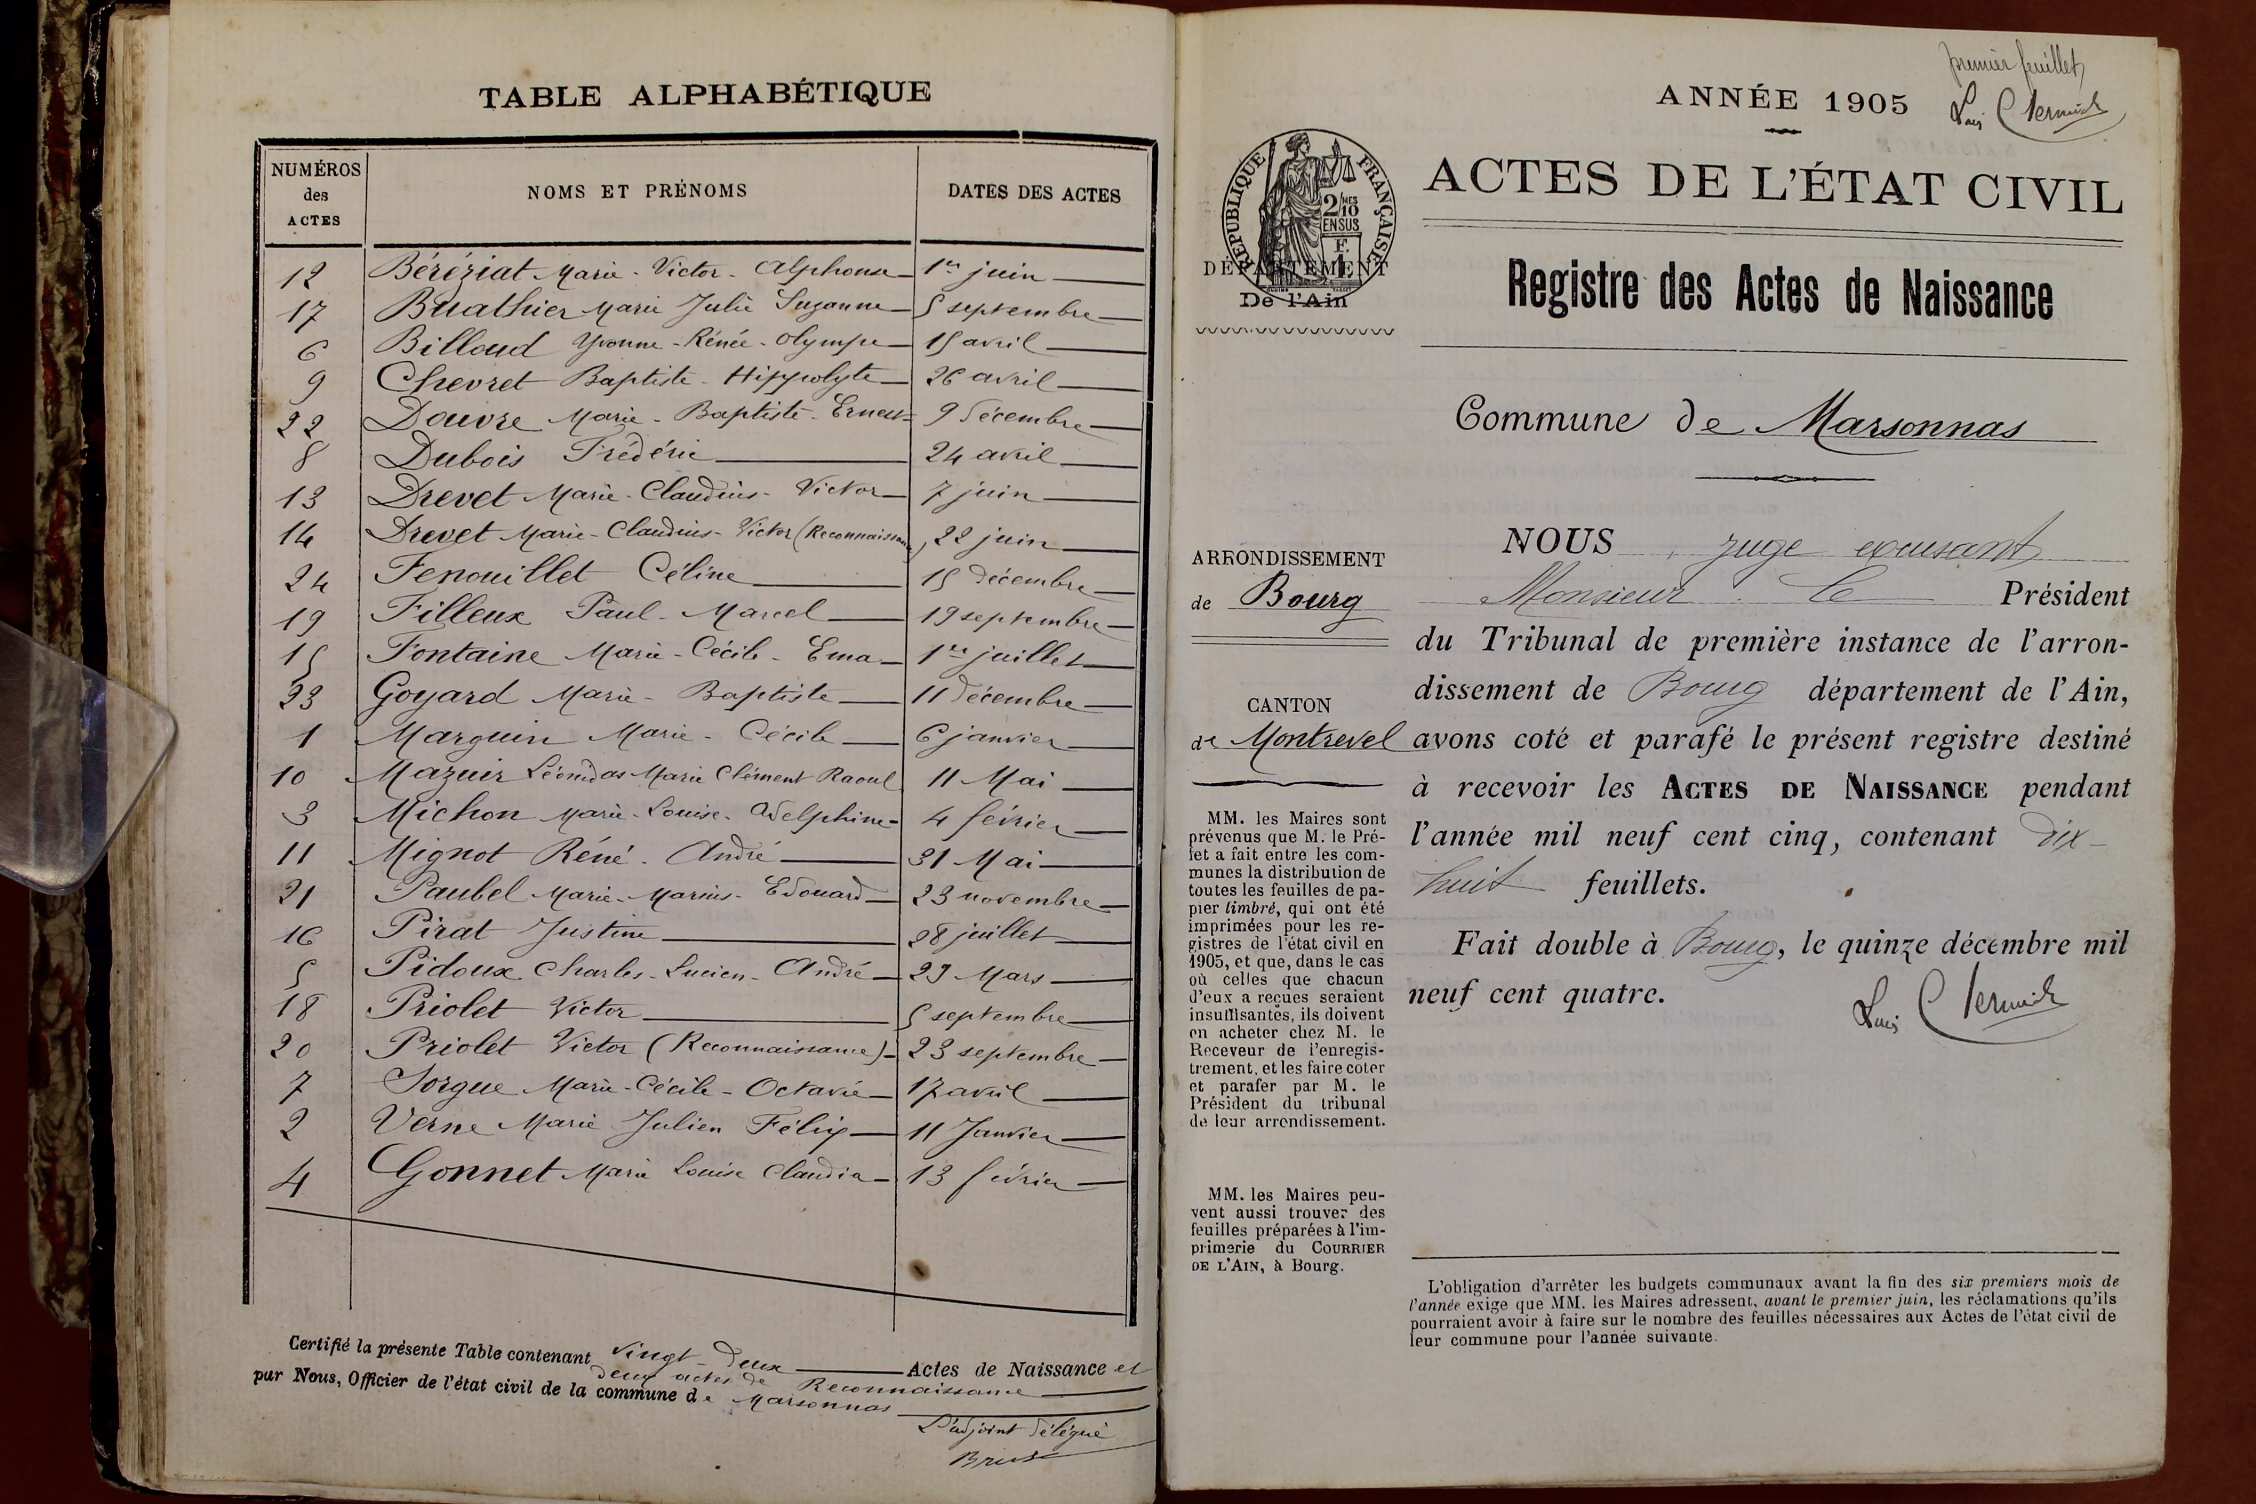 TABLE ALPHABÉTIQUE
NUMÉROS des ACTES NOMS ET PRÉNOMS DATES DES ACTES
12 Béréziat Marie-Victor-Alphonse 1er juin
17 Buathier Marie Julie Suzanne 5 septembre
6 Billoud Yvonne-Rénée-Olympe 15 avril
9 Chevret Baptiste-Hippolyte 26 avril
22 Douvre Marie-Baptiste-Ernest 9 décembre
8 Dubois Frédéric 24 avril
13 Drevet Marie-Claudius-Victor 7 juin
14 Drevet Marie-Claudius-Victor (Reconnaissance) 22 juin
24 Fenouillet Céline 15 décembre
19 Filleux Paul-Marcel 19 septembre
15 Fontaine Marie-Cécile-Ema 1er juillet
23 Goyard Marie-Baptiste 11 décembre
1 Marguin Marie-Cécile 6 janvier
10 Mazuir Léonidas Marie Clément Raoul 11 Mai
3 Michon Marie-Louise-Adelphine 4 février
11 Mignot Réné-André 31 Mai
21 Paubel Marie-Marius-Edouard 23 novembre
16 Pirat Justine 28 juillet
5 Pidoux Charles-Lucien-André 29 Mars
18 Priolet Victor 5 septembre
20 Priolet Victor (Reconnaissance) 23 septembre
7 Sorgue Marie-Cécile-Octavie 17 avril
2 Verne Marie Julien Félix 11 Janvier
4 Gonnet Marie Louise Claudia 13 février
Certifié la présente Table contenant vingt-deux Actes de Naissance et
deux actes de Reconnaissance
par Nous, Officier de l'état civil de la commune de Marsonnas
L'adjoint délégué
premier feuillet
ANNÉE 1905
RÉPUBLIQUE FRANÇAISE
2/10 MES
EN SUS
F.
1
DÉPARTEMENT
De l'Ain
ACTES DE L'ÉTAT CIVIL
Registre des Actes de Naissance
Commune de Marsonnas
ARRONDISSEMENT
de Bourg
CANTON
de Montrevel
MM. les Maires sont
prévenus que M. le Pré-
fet a fait entre les com-
munes la distribution de
toutes les feuilles de pa-
pier timbré, qui ont été
imprimées pour les re-
gistres de l'état civil en
1905, et que, dans le cas
où celles que chacun
d'eux a reçues seraient
insuffisantes, ils doivent
en acheter chez M. le
Receveur de l'enregis-
trement, et les faire coter
et parafer par M. le
Président du tribunal
de leur arrondissement.
MM. les Maires peu-
vent aussi trouver des
feuilles préparées à l'im-
primerie du COURRIER
DE L'AIN, à Bourg.
NOUS juge excusant
Monsieur le Président
du Tribunal de première instance de l'arron-
dissement de Bourg département de l'Ain,
avons coté et parafé le présent registre destiné
à recevoir les ACTES DE NAISSANCE pendant
l'année mil neuf cent cinq, contenant dix-
huit feuillets.
Fait double à Bourg, le quinze décembre mil
neuf cent quatre.
L'obligation d'arrêter les budgets communaux avant la fin des six premiers mois de
l'année exige que MM. les Maires adressent, avant le premier juin, les réclamations qu'ils
pourraient avoir à faire sur le nombre des feuilles nécessaires aux Actes de l'état civil de
leur commune pour l'année suivante.